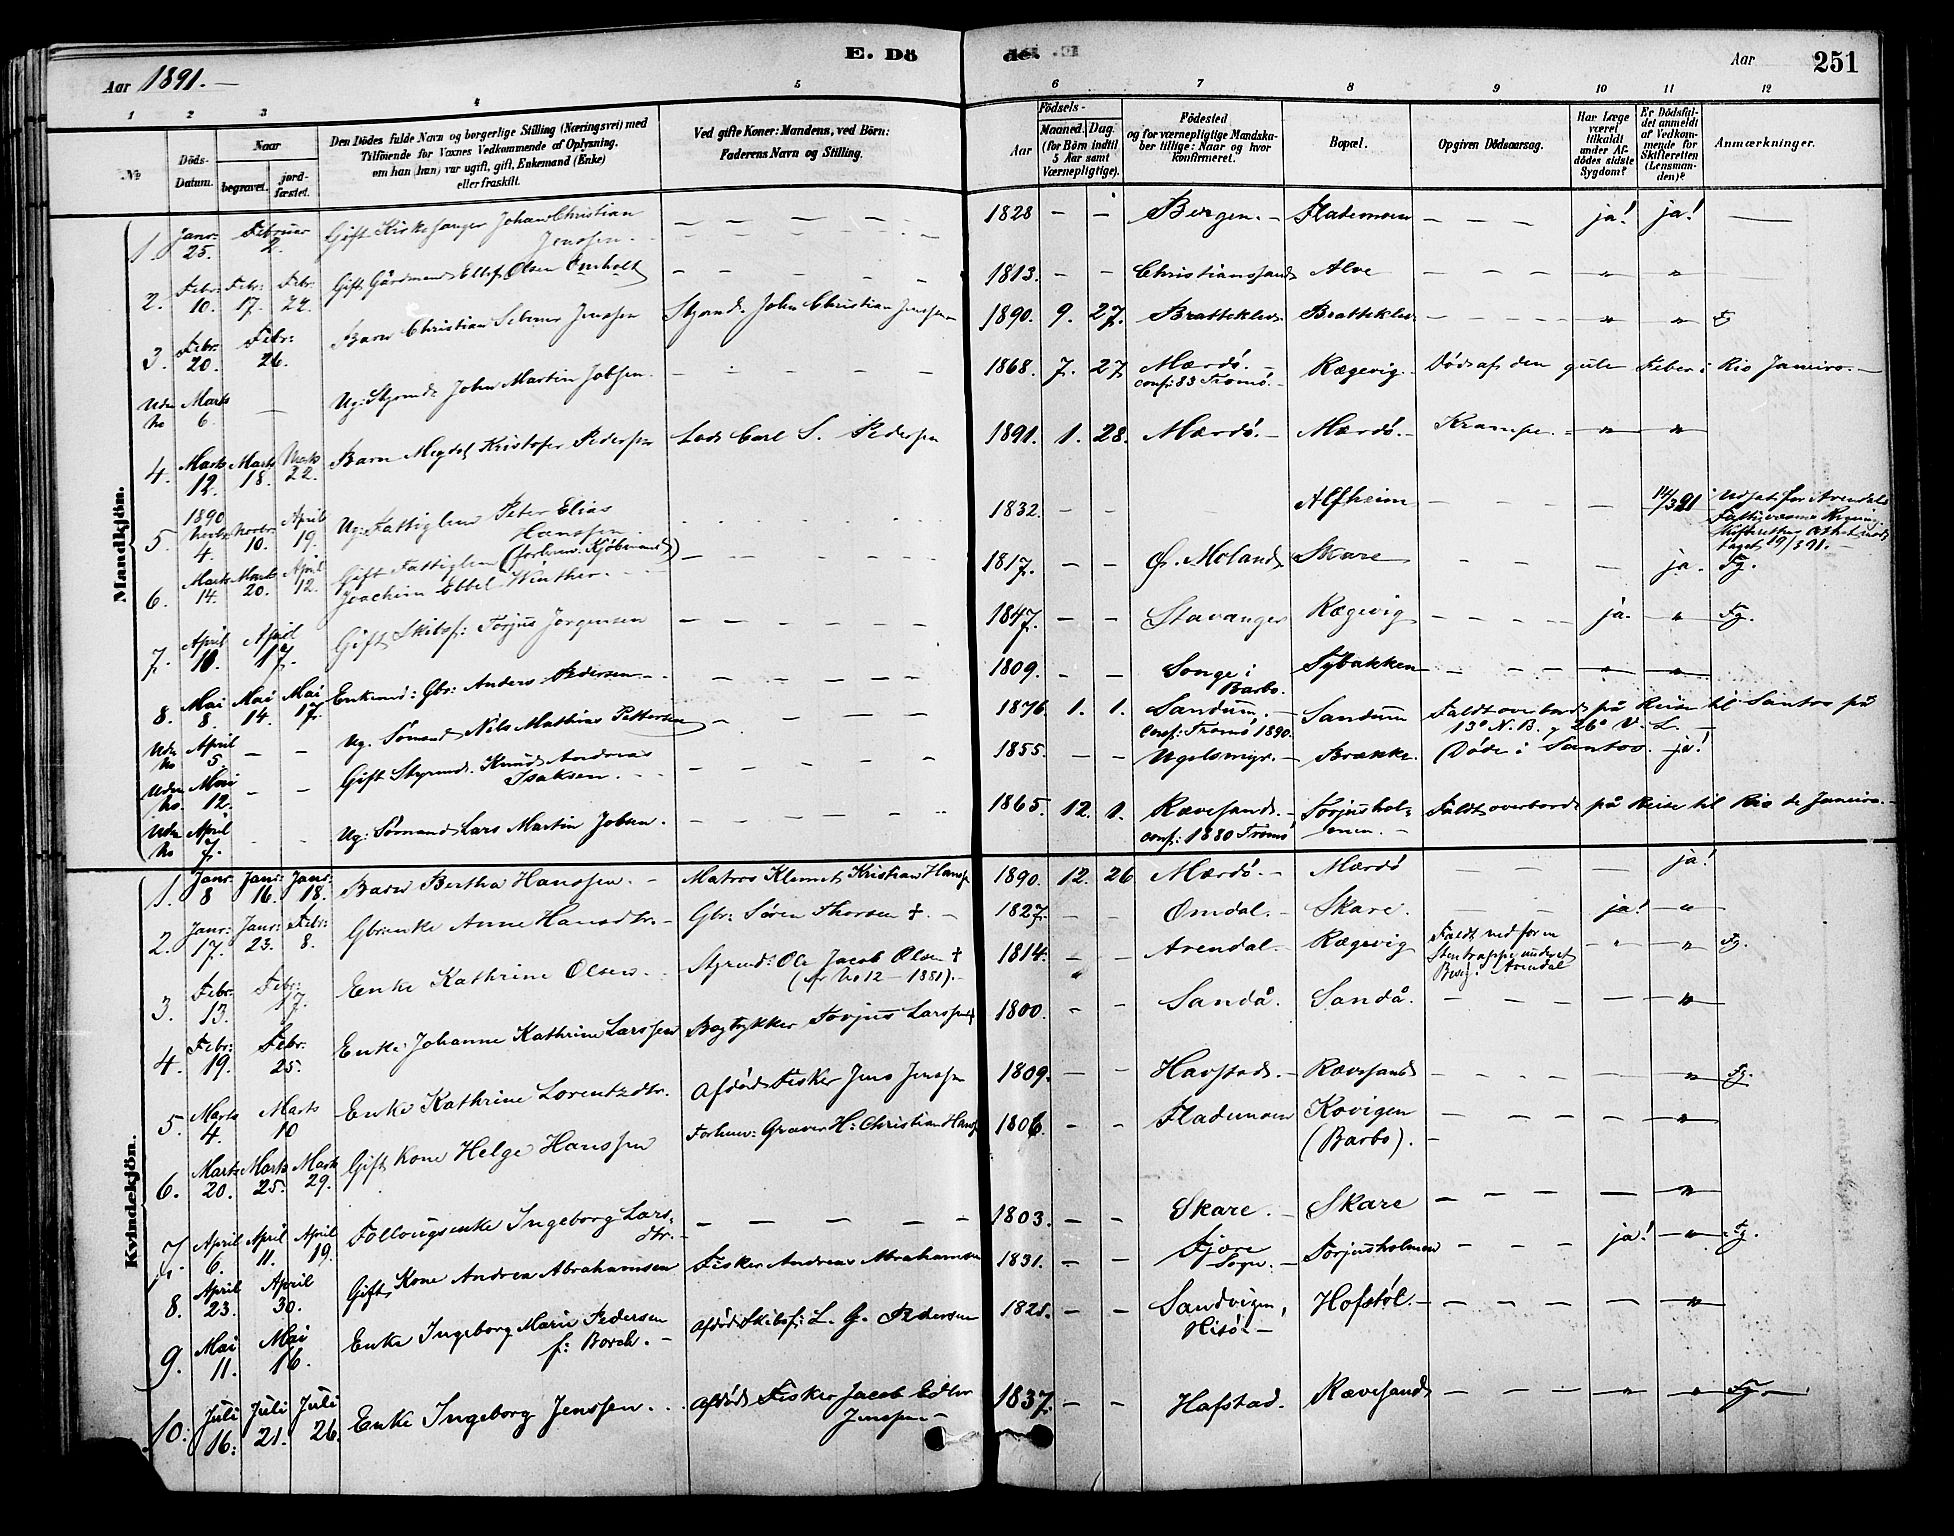 E. Dö
de.
Aar 1891.
Aar
251
1 2 3 4 5
6 7 8 9 10 11 12
№
Döds-Datum.
Naar
begravet.
jordfæstet.
Den Dödes fulde Navn og borgerlige Stilling (Næringsvei) med
Tilföiende for Voxnes Vedkommende af Oplysning,
om han (hun) var ugift, gift, Enkemand (Enke)
eller fraskilt.
Ved gifte Koner: Mandens, ved Börn:
Faderens Navn og Stilling.
Födsels-
Aar
Maaned. Dag.
(for Börn indtil
5 Aar samt
Værnepligtige).
Födested
og for værnepligtige Mandska-
ber tillige: Naar og hvor
konfirmeret.
Bopæl.
Opgiven Dödsaarsag.
Har Læge
været
tilkaldt
under Af-
dödes sidste
Sygdom?
Er Dödsfal-
det anmeldt
af Vedkom-
mende for
Skifteretten
(Lensman-
den)?
Anmærkninger.
Mandkjön.
1. Janr: 25. Februar 2. Gift Kirkesanger Johan Christian Jenssen. 1828 Bergen. Flademoen ja! ja!
2. Febr: 10. Febr: 17. Febr: 22. Gift Gårdmand Ellef Olsen Omholt 1813. Christianssand Alve " "
3. Febr: 20. Febr: 26. Barn Christian Jenssen Styrmd. John Christian Jenssen 1890. 9. 27. Bratteklev Bratteklev " " Fg
Uden No Marts 6. Ug: Styrmd. John Martin Jobsen. 1868. 7. 27. Mærdö. conf: 83 Tromö. Rægevig. Död af den gule Feber i Rio Janeiro.
4. Marts 12. Marts 18. Marts 22. Barn Kristofer Pedersen Lods Carl S. Pedersen 1891. 1. 28. Mærdö. Mærdö. Krampe. " "
5. 1890 Novbr 4. Novbr: 10. April 19. Ug: Fattiglem Peter Elias Hanssen 1832. Alfheim 14/3 91
6. Marts 14. Marts 20. April 12. Gift Fattiglem (forhenv. Kjöbmand) Joachim Ebbel Winther. 1817. Ø. Moland Skare ja. Fg.
7. April 10. April 17. Gift Skibsf: Torjus Jörgensen 1847. Stavanger Rægevig ja. " Fg.
8. Mai 8. Mai 14. Mai 17. Enkemd: Gbr: Anders Pedersen 1809. Songe i Barbo. Sybakken " "
Uden No April 5. Ug. Sömand Nils Mathias Pettersen 1876. 1. 1. Sandum. conf: Tromö 1890. Sandum Faldt overbord på Reise til Santos på 13° N. B. 26° V. L.
Uden No. Mai 12. Gift Styrmd. Knud Andreas Isaksen. 1855. Ugelsmyr. Brække. Döde i Santos. ja!
Uden No April 7. Ug: Sömand Lars Martin Jobsen. 1865. 12. 1. Rævesand. conf: 1880 Tromö Torjusholmen. Faldt overbord på Reise til Rio de Janeiro.
Kvindekjön.
1. Janr: 8 Janr: 16. Janr: 18. Barn Bertha Hanssen. Matros Klemet Kristian Hanss 1890. 12. 26 Mærdö. Mærdö ja!
2. Janr: 17. Janr: 23. Febr: 8. Gbr:enke Anne Hansdtr. Gbr: Sören Thorsen †. 1827. Omdal. Skare. ja! "
3. Febr: 13. Febr: 17. Enke Kathrine Olsen. Styrmd: Ole Jacob Olsen † (cfr No 12 – 1851). 1814. Arendal. Rægevig Faldt ned for en Stentrappe Arendal " " Fg.
4. Febr: 19. Febr: 25. Enke Johanne Kathrine Larssen Bogtykker Torjus Larssen † 1800. Sandå. Sandå. "
5. Marts 4. Marts 10 Enke Kathrine Lorentzdtr. Afdöd Fisker Jens Jenssen 1809. Havstad. Rævesand " Fg.
6. Marts 20. Marts 25. Marts 29. Gift Kone Helge Hanssen Forhenv: Graver H: Christian Hanss 1806. Flademoen Kovigen (Barbo). "
7. April 6. April 11. April 19. Follougsenke Ingeborg Larsdtr. 1803. Skare. Skare "
8. April 23. April 30. Gift Kone Andrea Abrahamsen Fisker Andreas Abrahamsen 1831. Fjære Sogn. Torjusholmen ja! " Fg.
9. Mai 11. Mai 16. Enke Ingeborg Marie Pedersen f: Borch. Afdöd Skibsf: L. G. Pedersen 1821. Sandvigen, Hisö. Hofstöl. "
10. Juli 16. Juli 21. Juli 26. Enke Ingeborg Jenssen. Afdöd Fisker Jacob Jenssen 1837. Hafstad. Rævesand " " Fg.